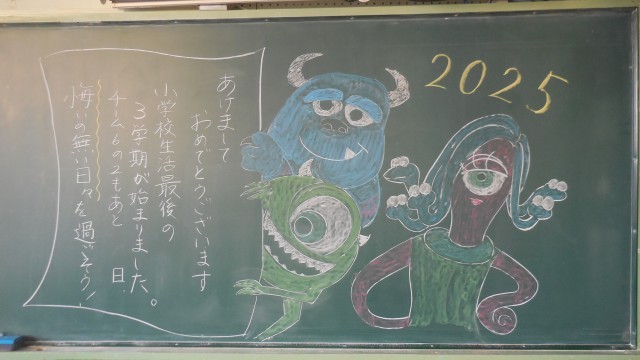 あけまして
おめでとうございます
小学校生活最後の
3学期が始まりました。
チム6の2もあと　日
悔いの無い日々を過ごそう!
2025